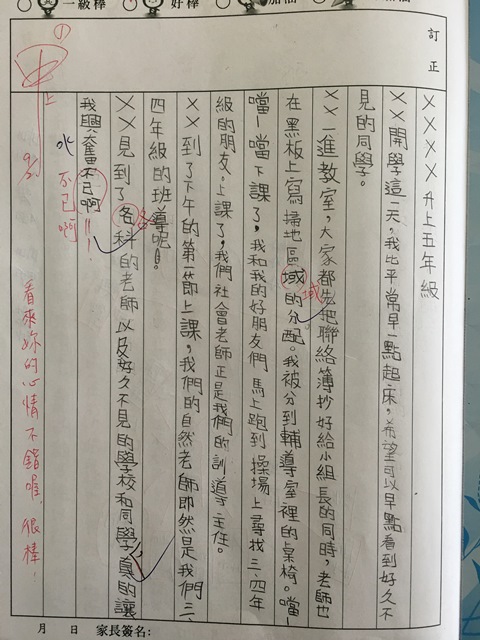 一級棒
好棒
加油
訂正
××××升上五年級
××開學這一天，我比平常早一點起床，希望可以早點看到好久不
見的同學。
××一進教室，大家都先把聯絡簿抄好給小組長的同時，老師也
在黑板上寫掃地區域的分配。我被分到輔導室裡的桌椅。噹－
噹－噹下課了，我和我的好朋友們馬上跑到操場上尋找三、四年
級的朋友。上課了，我們社會老師正是我們的訓導主任。
××到了下午的第一節上課，我們的自然老師即然是我們三、
四年級的班導呢！
××見到了各科的老師以及好久不見的學校和同學，真的讓
我興奮不已啊！！
域
各
不已啊
甲上
看來妳的心情不錯喔，很棒！
月 日 家長簽名: